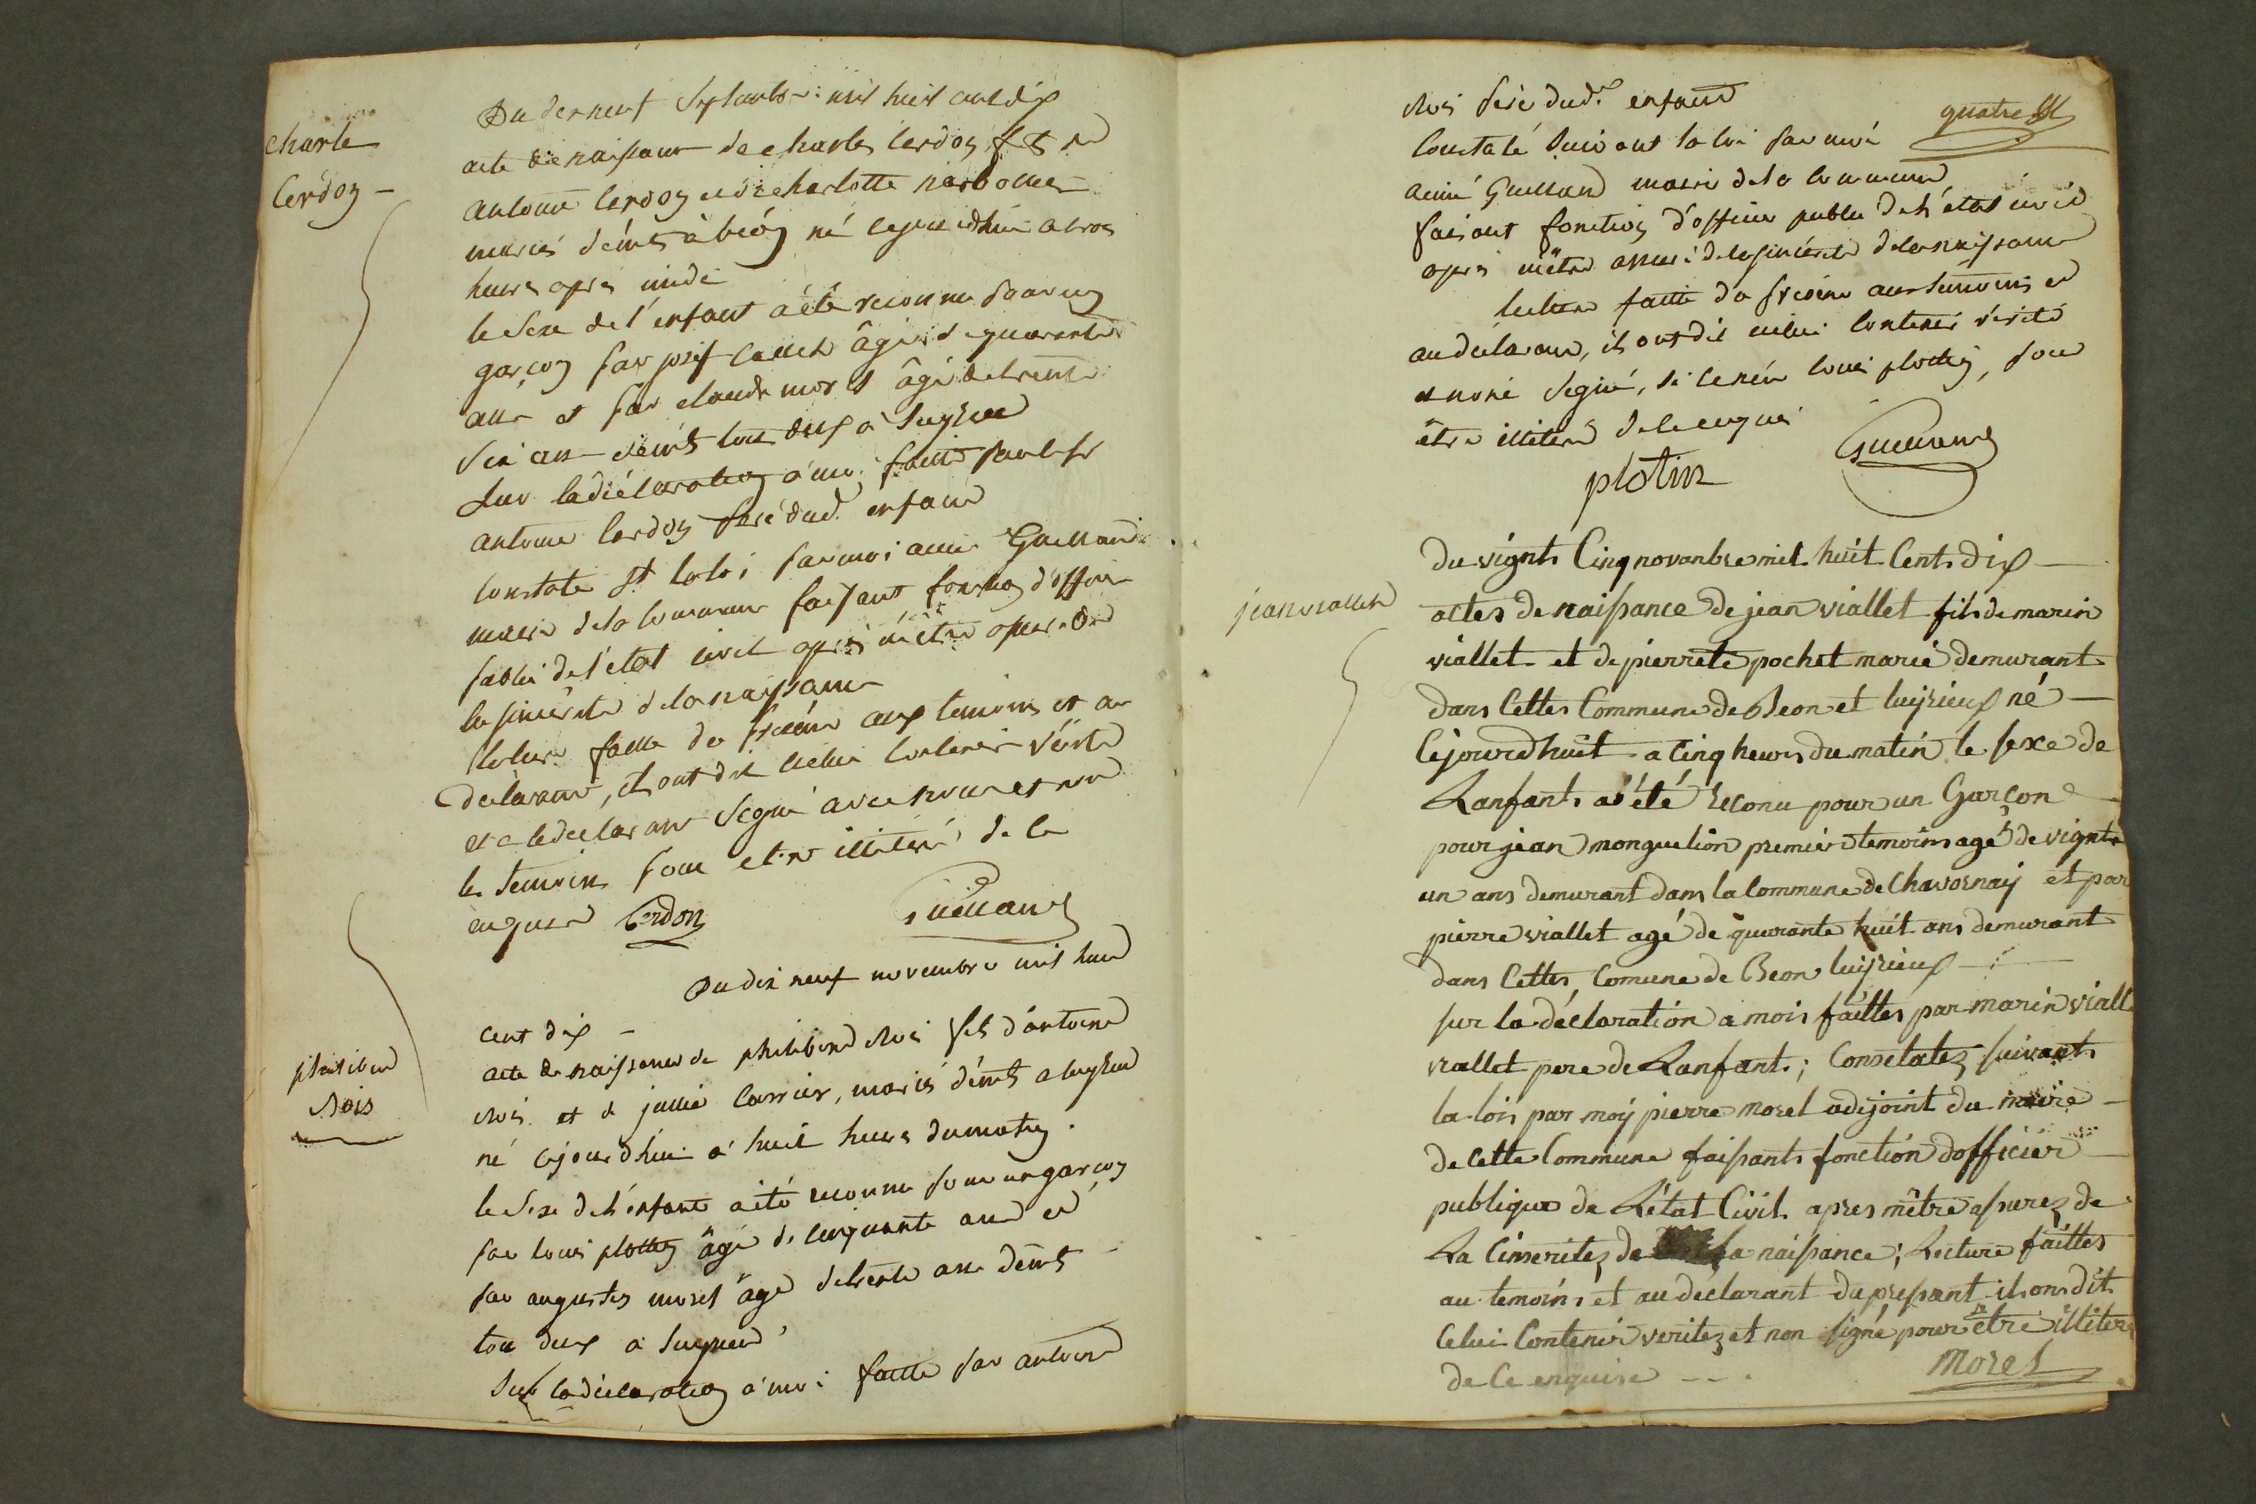 charle
Cerdon -
Du dix neuf septembre mil huit cent dix
acte de naissance de charles Cerdon fils de
antoine Cerdon et de charlotte
mariés demts à béon né cejourdhui a trois
heures après midi
le sexe de l'enfant a été reconnu pour un
garçon par josef Callet âgé de quarante
ans et par claude morel âgé de trente
six ans demts tous deux à luyrieu
Sur la déclaration à moi faitte par led
antoine Cerdon père dud. enfant
constaté st la loi par moi aimé Guilland
maire de la commune faisant fonction d'officier
public de l'état civil après m'être assuré de
la sincérité de la naissance
lecture faitte du présent aux temoins et au
declarant, ils ont dit icelui contenir vérité
et a le declarant signé avec nous et non
les temoins pour etre illitéré de ce
enquis Cerdon Guilland
philibert
Rois
Du dix neuf novembre mil huit
cent dix -
acte de naissance de philibert Rois fils d'antoine
Rois et de jullie Carrier, mariés demts a luyrieu
né cejourdhui à huit heures du matin.
le sexe de l'enfant a été reconnu pour un garçon
par louis plottin âgé de cinquante ans et
par augustin morel âgé de trente ans demts
tous deux à luyrieu
Sur la déclaration à moi faitte par antoine
Rois père dud.t enfant
quatre
Constaté suivant la loi par moi
aimé Guilland maire de la commune
faisant fonction d'officier public de l'état civil
après m'être assuré de la sincérité de la naissance
lecture faitte du présent aux temoins et
au déclarant, ils ont dit icelui contenir vérité
et non signé, si ce n'est louis plottin, pour
être illiteré de ce enquis
plotin Guilland
jean viallet
du vignts Cinq novanbre mil huit Cents dix -
actes de naissance de jean viallet fils de marin
viallet et de pierrete pochet marié demurant
dans Cettes Commune de Beon et luijrieux né -
Cejourdhuit a Cinq heures du matin le sexe de
Lanfants a été reconu pour un Garçon
pour jean monguelion premier temoins agé de vignts
un ans demurant dans la Commune de Chavornaij et par
pierre viallet agé de quarante huit ans demurant
dans Cettes Comune de Beon luijrieux -
sur la déclaration a mois faittes par marin viall
viallet pere de Lanfants; Constatez suivant
la lois par moij pierre morel adejoint du maire -
de cette Commune faisants fonction dofficier -
publique de L'état Civil apres mêtre assurez de
La Cinseritez de La naissance; Lecture faittes
au temoins et au déclarant du present ils ons dit
Celui Contenir veritez et non signé pour être illitere
de Ce enquise - - . Morel